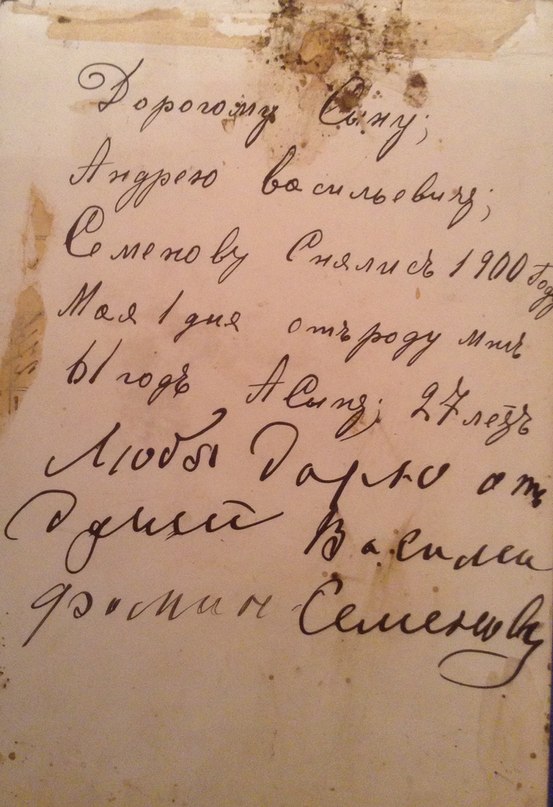 Дорогому Сыну;
Андрею васильевичу;
Семенову Снялись 1900 году
Мая 1 дня отъ роду мнѣ
61 годъ А Сыну; 27 летъ
Любя Дарю от
Душей Василий
Фомич Семеновъ